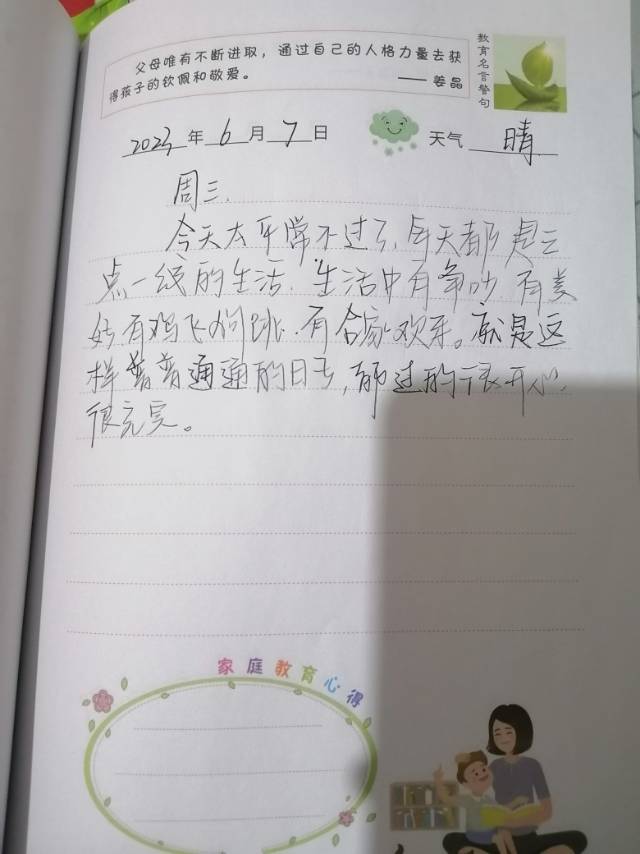 父母唯有不断进取，通过自己的人格力量去获
得孩子的钦佩和敬爱。
——姜晶
教育名言警句
2023年6月7日 天气 晴
周三.
今天太平常不过了,每天都是三
点一线的生活.生活中有争吵 有美
好.有鸡飞狗跳.有合家欢乐。就是这
样普普通通的日子,都过的很开心.
很充实。
家庭教育心得